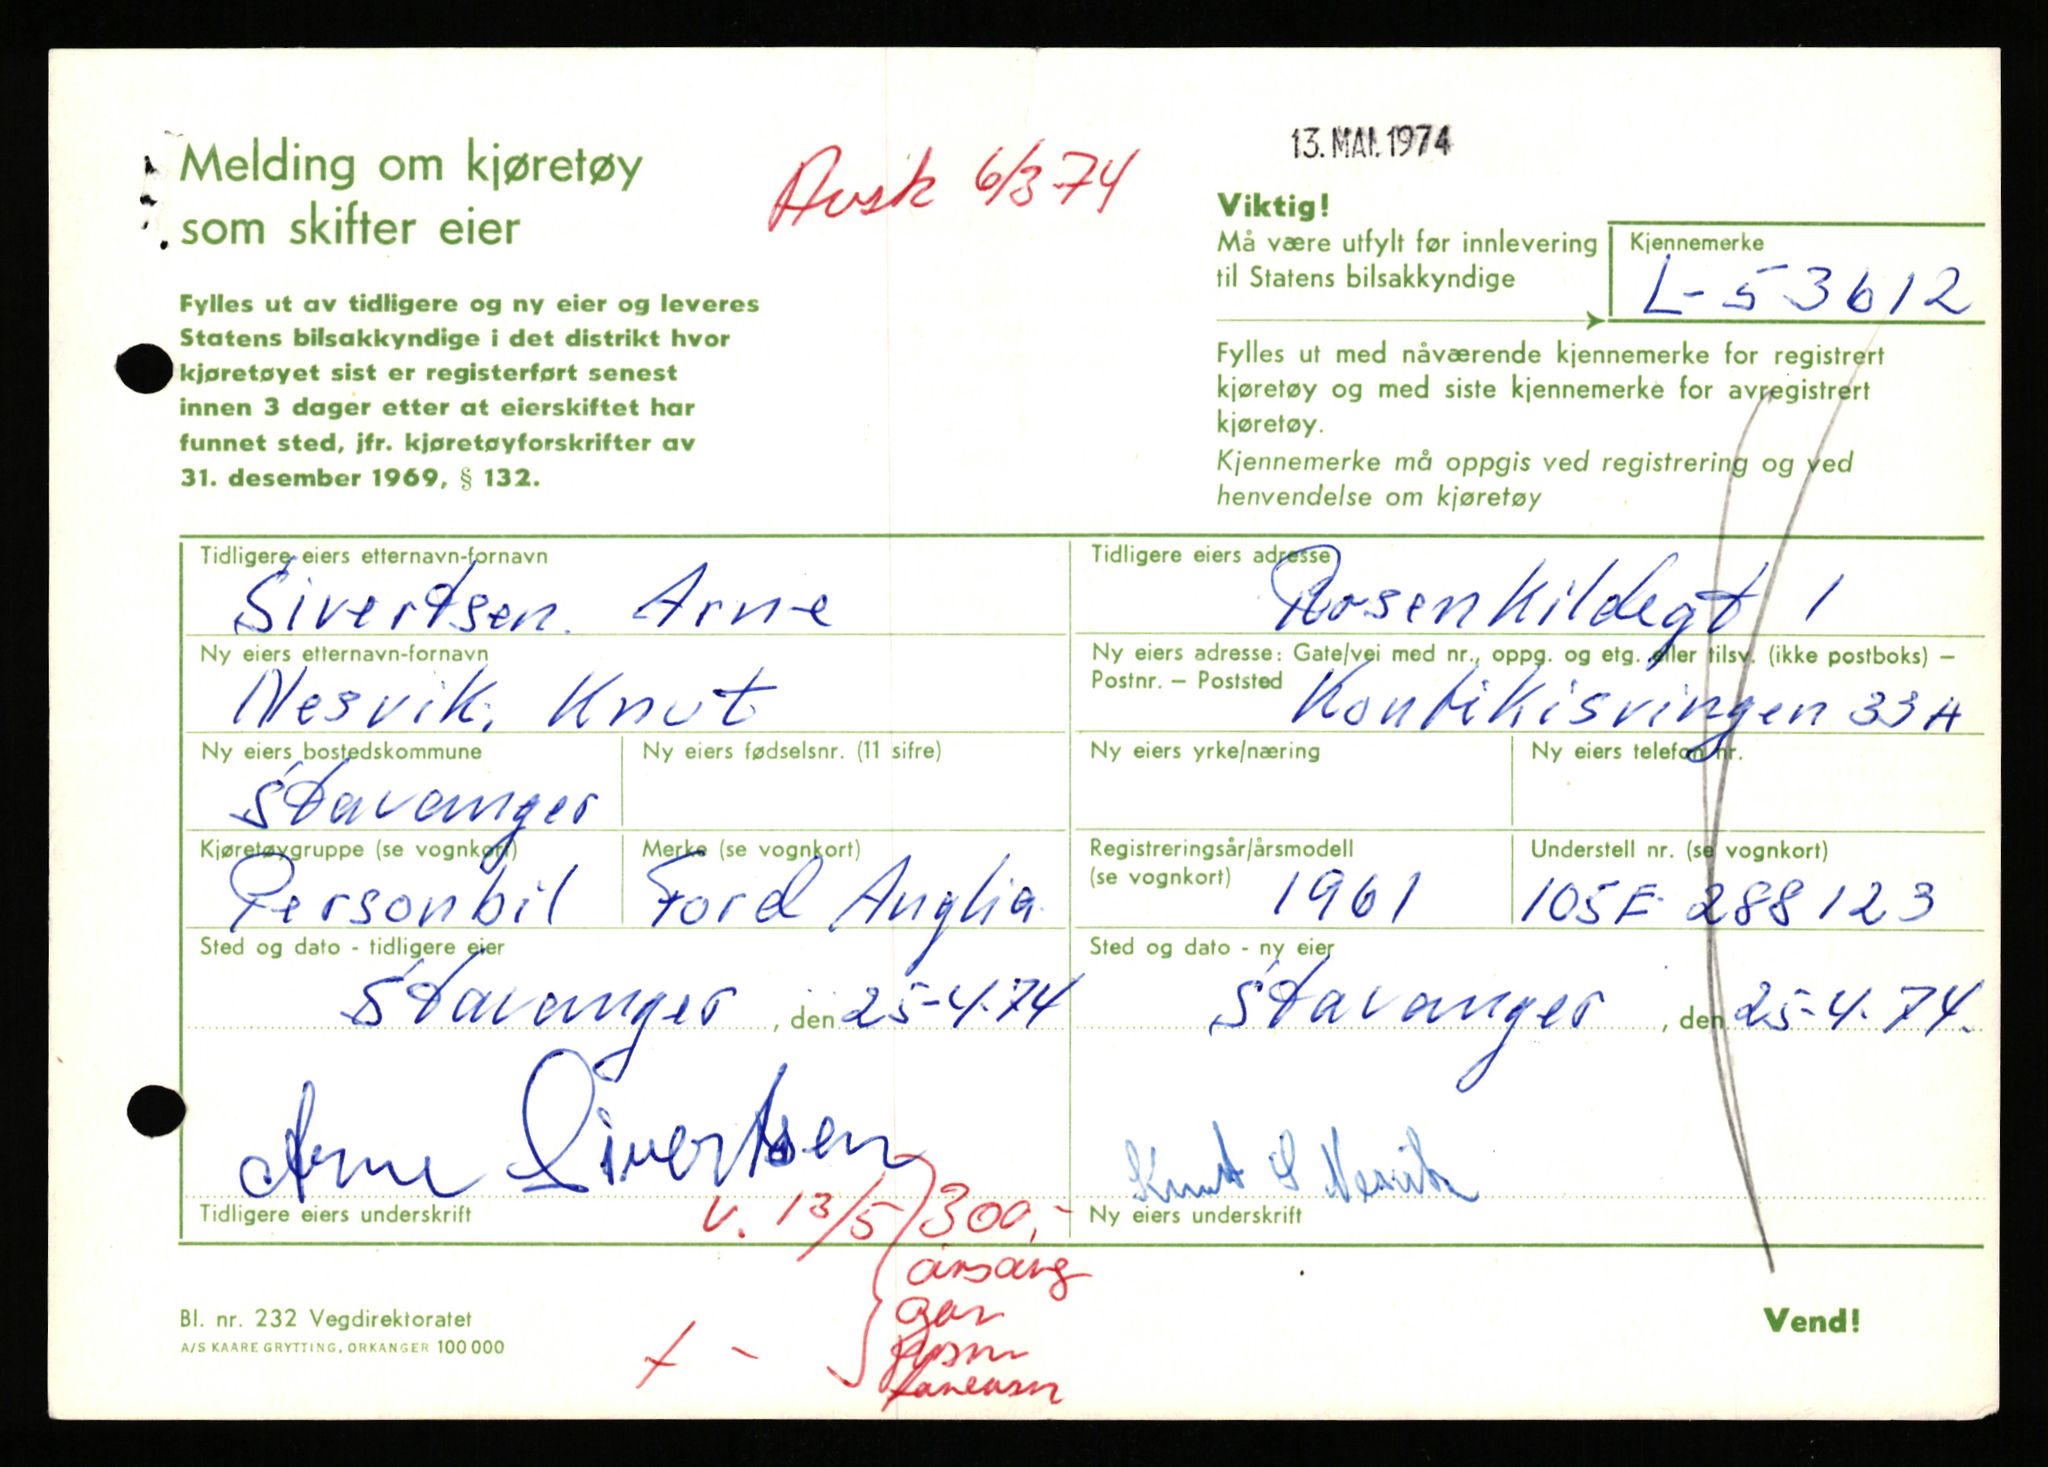 13. MAI. 1974
Melding om kjøretøy
som skifter eier
Avsk 6/3-74
Fylles ut av tidligere og ny eier og leveres
Statens bilsakkyndige i det distrikt hvor
kjøretøyet sist er registerført senest
innen 3 dager etter at eierskiftet har
funnet sted, jfr. kjøretøyforskrifter av
31. desember 1969, § 132.
Viktig!
Må være utfylt før innlevering
til Statens bilsakkyndige
Kjennemerke
L-53612
Fylles ut med nåværende kjennemerke for registrert
kjøretøy og med siste kjennemerke for avregistrert
kjøretøy.
Kjennemerke må oppgis ved registrering og ved
henvendelse om kjøretøy
Tidligere eiers etternavn-fornavn
Sivertsen. Arne
Tidligere eiers adresse
Rosenkildegt 1
Ny eiers etternavn-fornavn
Nesvik, Knut
Ny eiers adresse: Gate/vei med nr., oppg. og etg. eller tilsv. (ikke postboks) –
Postnr. – Poststed
Kontikisvingen 33A
Ny eiers bostedskommune
Stavanger
Ny eiers fødselsnr. (11 sifre)
Ny eiers yrke/næring
Ny eiers telefon nr.
Kjøretøygruppe (se vognkort)
Personbil
Merke (se vognkort)
Ford Anglia
Registreringsår/årsmodell
(se vognkort)
1961
Understell nr. (se vognkort)
105E 288123
Sted og dato - tidligere eier
Stavanger, den 25-4-74
Sted og dato - ny eier
Stavanger, den 25-4.74.
Arne Sivertsen
Tidligere eiers underskrift
Knut S Nesvik
Ny eiers underskrift
v. 13/5 300,-
Bl. nr. 232 Vegdirektoratet
A/S KAARE GRYTTING, ORKANGER 100 000
Vend!